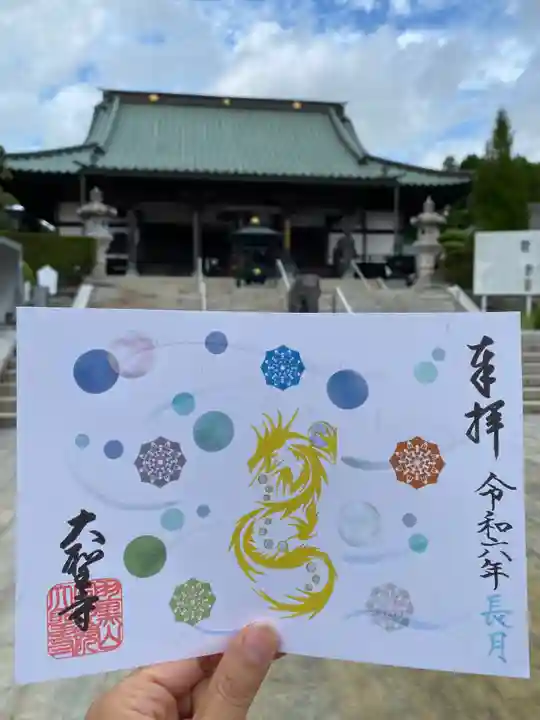 奉拝
令和六年 長月
大聖寺